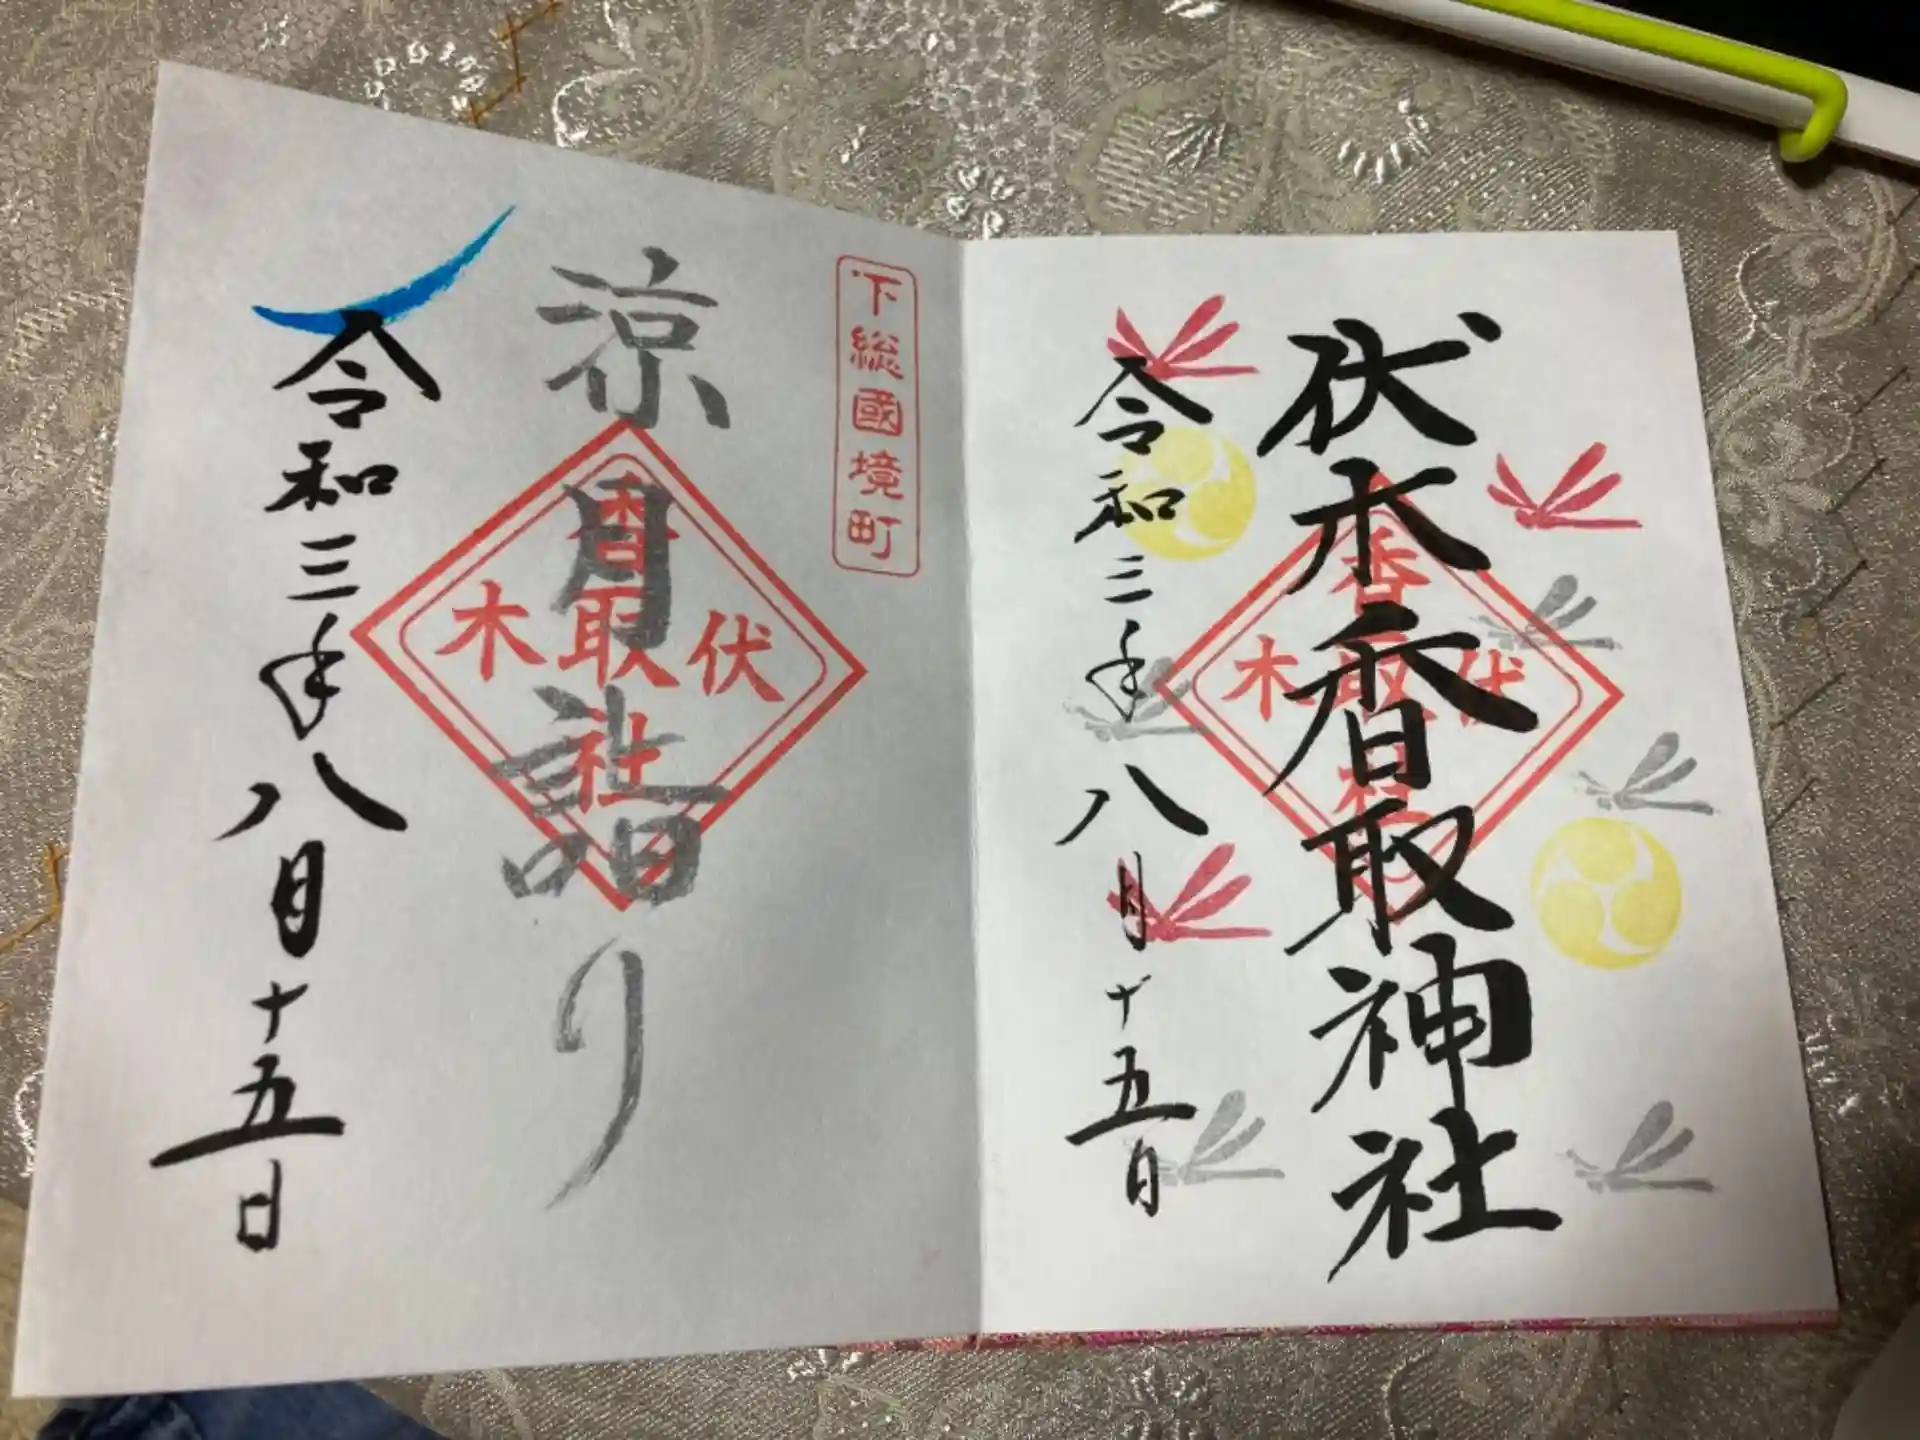 伏木香取神社
香取社
伏
木
令和三年八月十五日
下総國境町
涼月詣り
香取社
伏
木
令和三年八月十五日